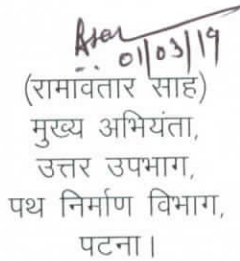 01/03/19
(रामावतार साह)
मुख्य अभियंता,
उत्तर उपभाग,
पथ निर्माण विभाग,
पटना।